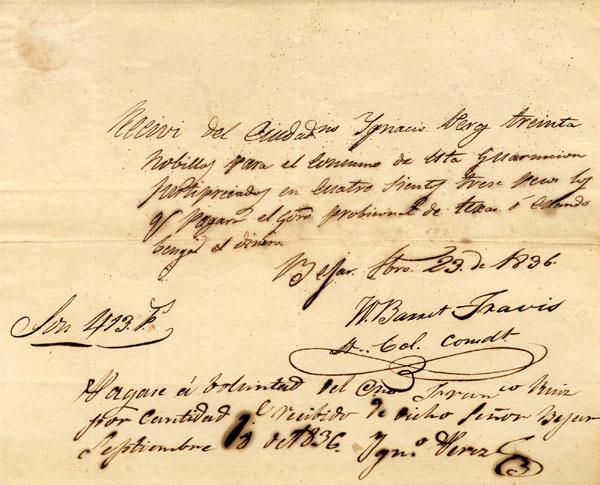 Recivi del Ciudadno Ignacio Perez treinta
nobillos para el consumo de esta Guarnicion
justipreciados en cuatro siento trese pesos los
q pagara el Gono provicional de texas ó cuando
benga el dinero.
Bejar. Fbro. 23. de 1836.
Son 413. Ps
W Barret Travis
Lt. Col. comdt.
Pagase á boluntad del Cno Franco Ruiz
por cantidad recibido de dicho Señor Bejar
Septiembre de 1836. Igno. Perez